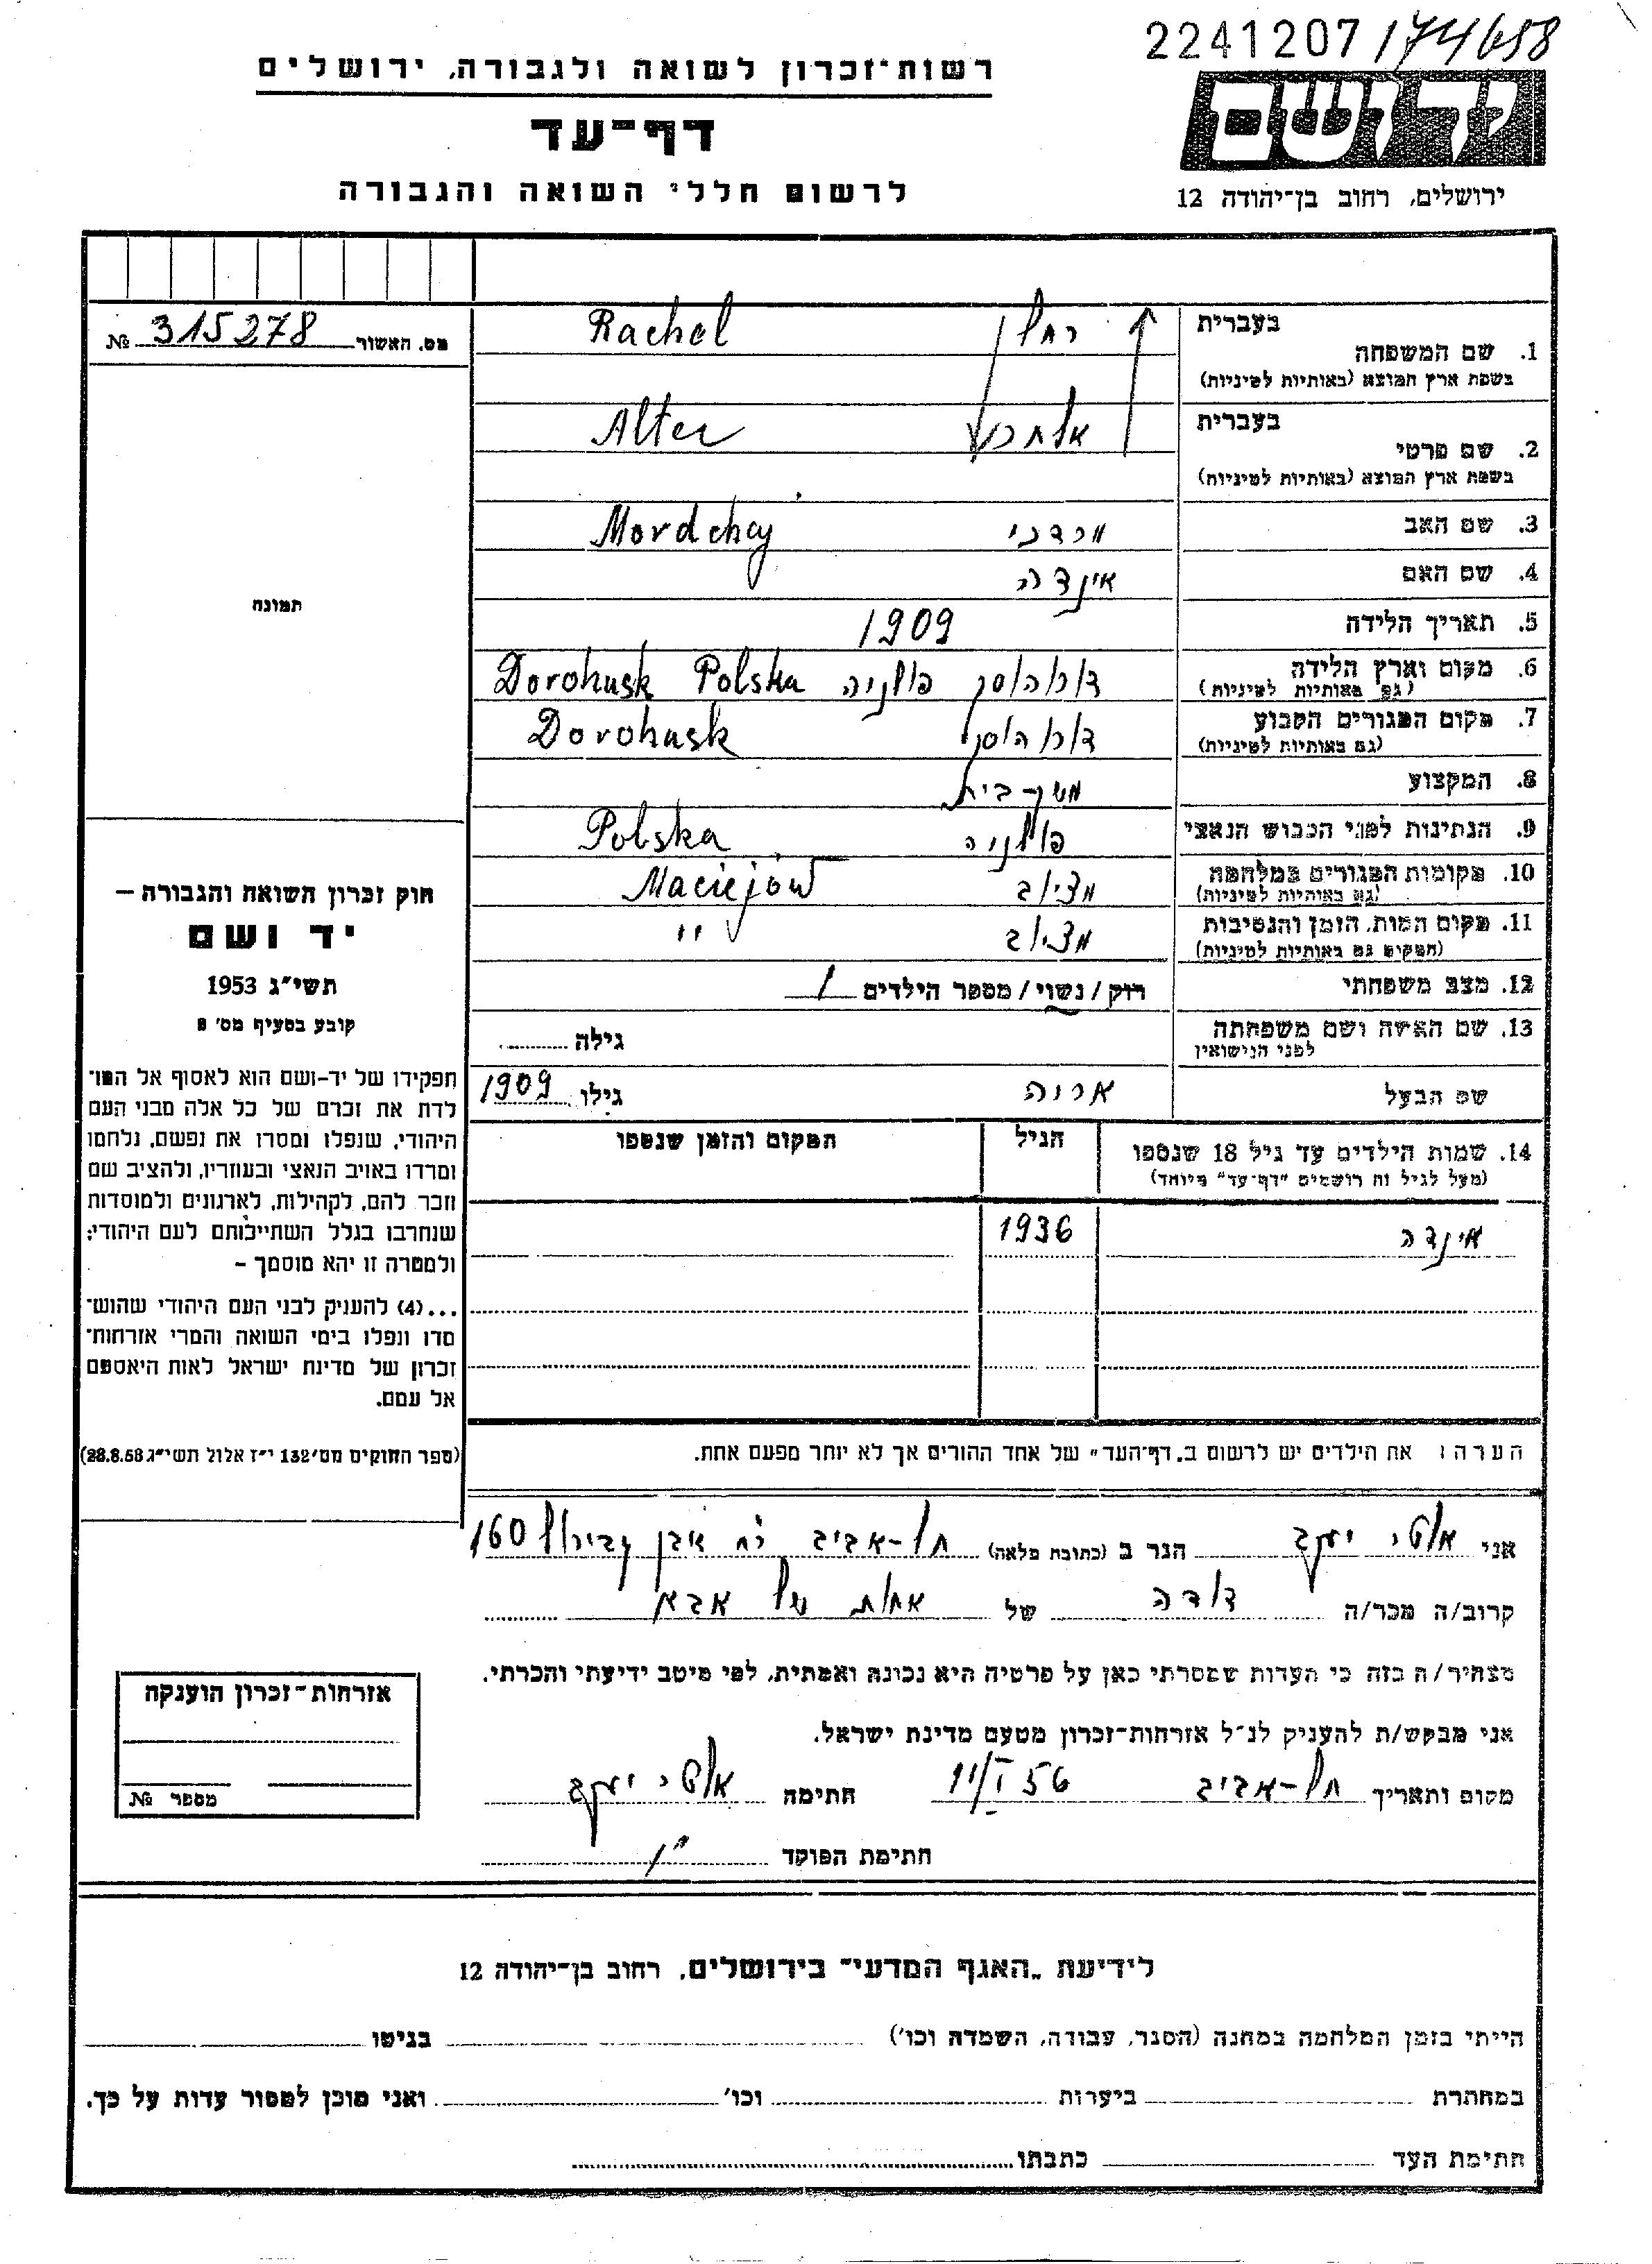 2241207 / 174658
רשות־זכרון לשואה ולגבורה, ירושלים
יד ושם
דף־עד
לרשום חללי השואה והגבורה
ירושלים, רחוב בן־יהודה 12
מס. האשור 315278 №
בעברית רחל Rachel
1. שם המשפחה
בשפת ארץ המוצא (באותיות לטיניות)
בעברית Alter
2. שם פרטי
בשפת ארץ המוצא (באותיות לטיניות)
3. שם האב מרדכי Mordchaj
4. שם האם אינדה
5. תאריך הלידה 1909
6. מקום וארץ הלידה דורוהוסק פולניה Dorohusk Polska
(גם באותיות לטיניות)
7. מקום המגורים הקבוע דורוהוסק Dorohusk
(גם באותיות לטיניות)
8. המקצוע משק-בית
9. הנתינות לפני הכבוש הנאצי פולניה Polska
10. מקומות המגורים במלחמה מציוב Maciejów
(גם באותיות לטיניות)
11. מקום המות, הזמן והנסיבות מציוב "
(המקום גם באותיות לטיניות)
12. מצב משפחתי רוק/נשוי/מספר הילדים 1
13. שם האשה ושם משפחתה גילה
לפני הנישואין
שם הבעל אריה גילו 1909
14. שמות הילדים עד גיל 18 שנספו הגיל המקום והזמן שנספו
(מעל לגיל זה רושמים "דף־עד" מיוחד)
אינדה 1936
הערה: את הילדים יש לרשום ב„דף־העד" של אחד ההורים אך לא יותר מפעם אחת.
תמונה
חוק זכרון השואה והגבורה —
יד ושם
תשי"ג 1953
קובע בסעיף מס' 2
תפקידו של יד-ושם הוא לאסוף אל המו־
לדת את זכרם של כל אלה מבני העם
היהודי, שנפלו ומסרו את נפשם, נלחמו
ומרדו באויב הנאצי ובעוזריו, ולהציב שם
וזכר להם, לקהילות, לארגונים ולמוסדות
שנחרבו בגלל השתייכותם לעם היהודי;
ולמטרה זו יהא מוסמך —
...(4) להעניק לבני העם היהודי שהוש־
מדו ונפלו בימי השואה והמרי אזרחות־
זכרון של מדינת ישראל לאות היאספם
אל עמם.
(ספר החוקים מס' 132 י"ז אלול תשי"ג 28.8.53)
אני יעקב הגר ב (כתובת מלאה) תל-אביב רח אבן גבירול 160
קרוב/ה מכר/ה דודה של אחות של אבא
מצהיר/ה בזה כי העדות שמסרתי כאן על פרטיה היא נכונה ואמתית, לפי מיטב ידיעתי והכרתי.
אני מבקש/ת להעניק לנ"ל אזרחות־זכרון מטעם מדינת ישראל.
מקום ותאריך תל-אביב 11/I 56 חתימה יעקב
חתימת הפוקד
אזרחות־זכרון הוענקה
מספר №
לידיעת „האגף המדעי" בירושלים, רחוב בן־יהודה 12
הייתי בזמן המלחמה במחנה (הסגר, עבודה, השמדה וכו') בגיטו
במחתרת ביערות וכו' ואני מוכן למסור עדות על כך.
חתימת העד כתבתו